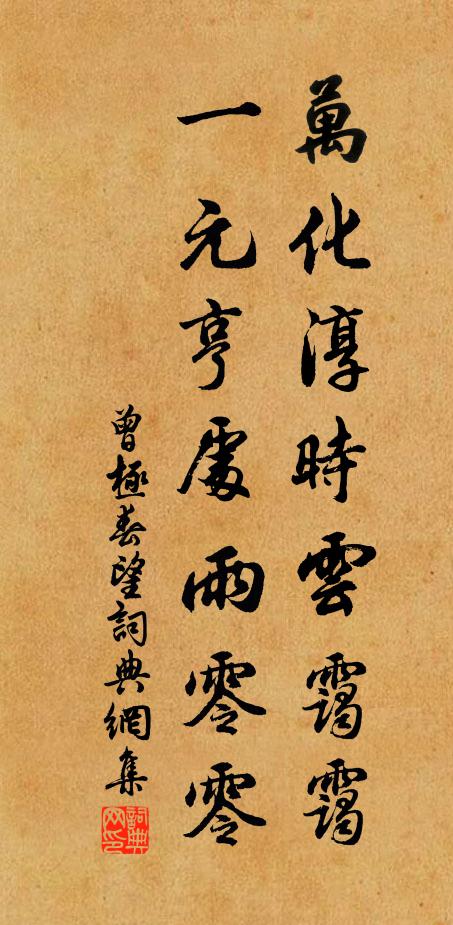 萬化淳時雲靄靄
一元亨處雨零零
曾極春望詞典網集
詞典网印